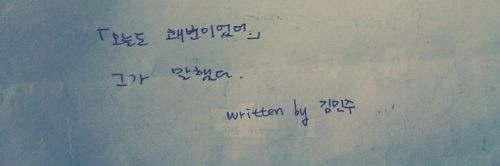 「오늘도 쾌변이었어.」
그가 말했다.
written by 김민주